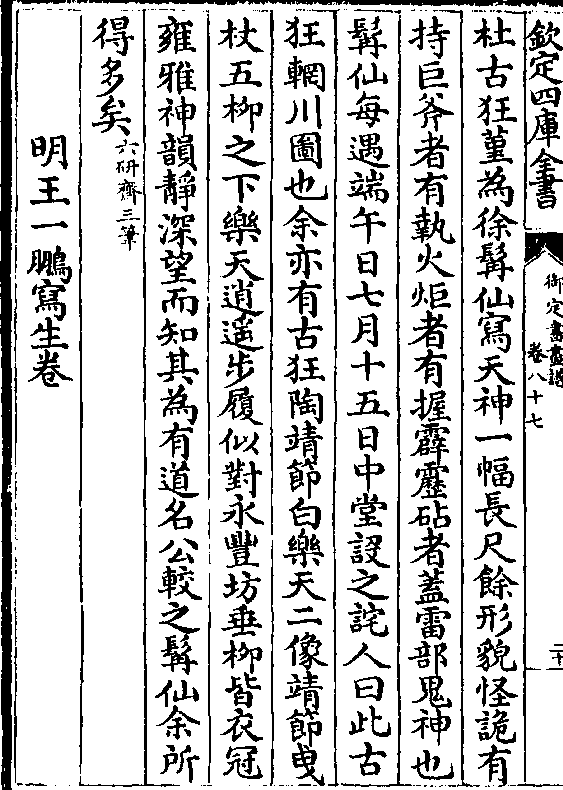 欽定四庫全書
御定書畫譜
卷八十七
二十
杜古狂堇為徐髯仙寫天神一幅長尺餘形貌怪詭有
持巨斧者有執火炬者有握霹靂砧者蓋雷部鬼神也
髯仙每遇端午日七月十五日中堂設之詫人曰此古
狂輞川圖也余亦有古狂陶靖節白樂天二像靖節曳
杖五柳之下樂天逍遥步履似對永豐坊垂柳皆衣冠
雍雅神韻靜深望而知其為有道名公較之髯仙余所
得多矣六硏齋三筆
明王一鵬寫生卷